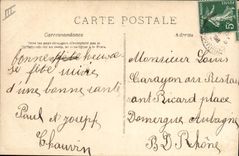 III
CARTE POSTALE
Correspondance
Adresse
bonne heureuse
si fête suivie
d'une bonne santé
Paul et Joseph
Chauvin
Monsieur Louis
Garayon ars Restau
ant Ricard place
Domergue Aubagne
B. D Rhône